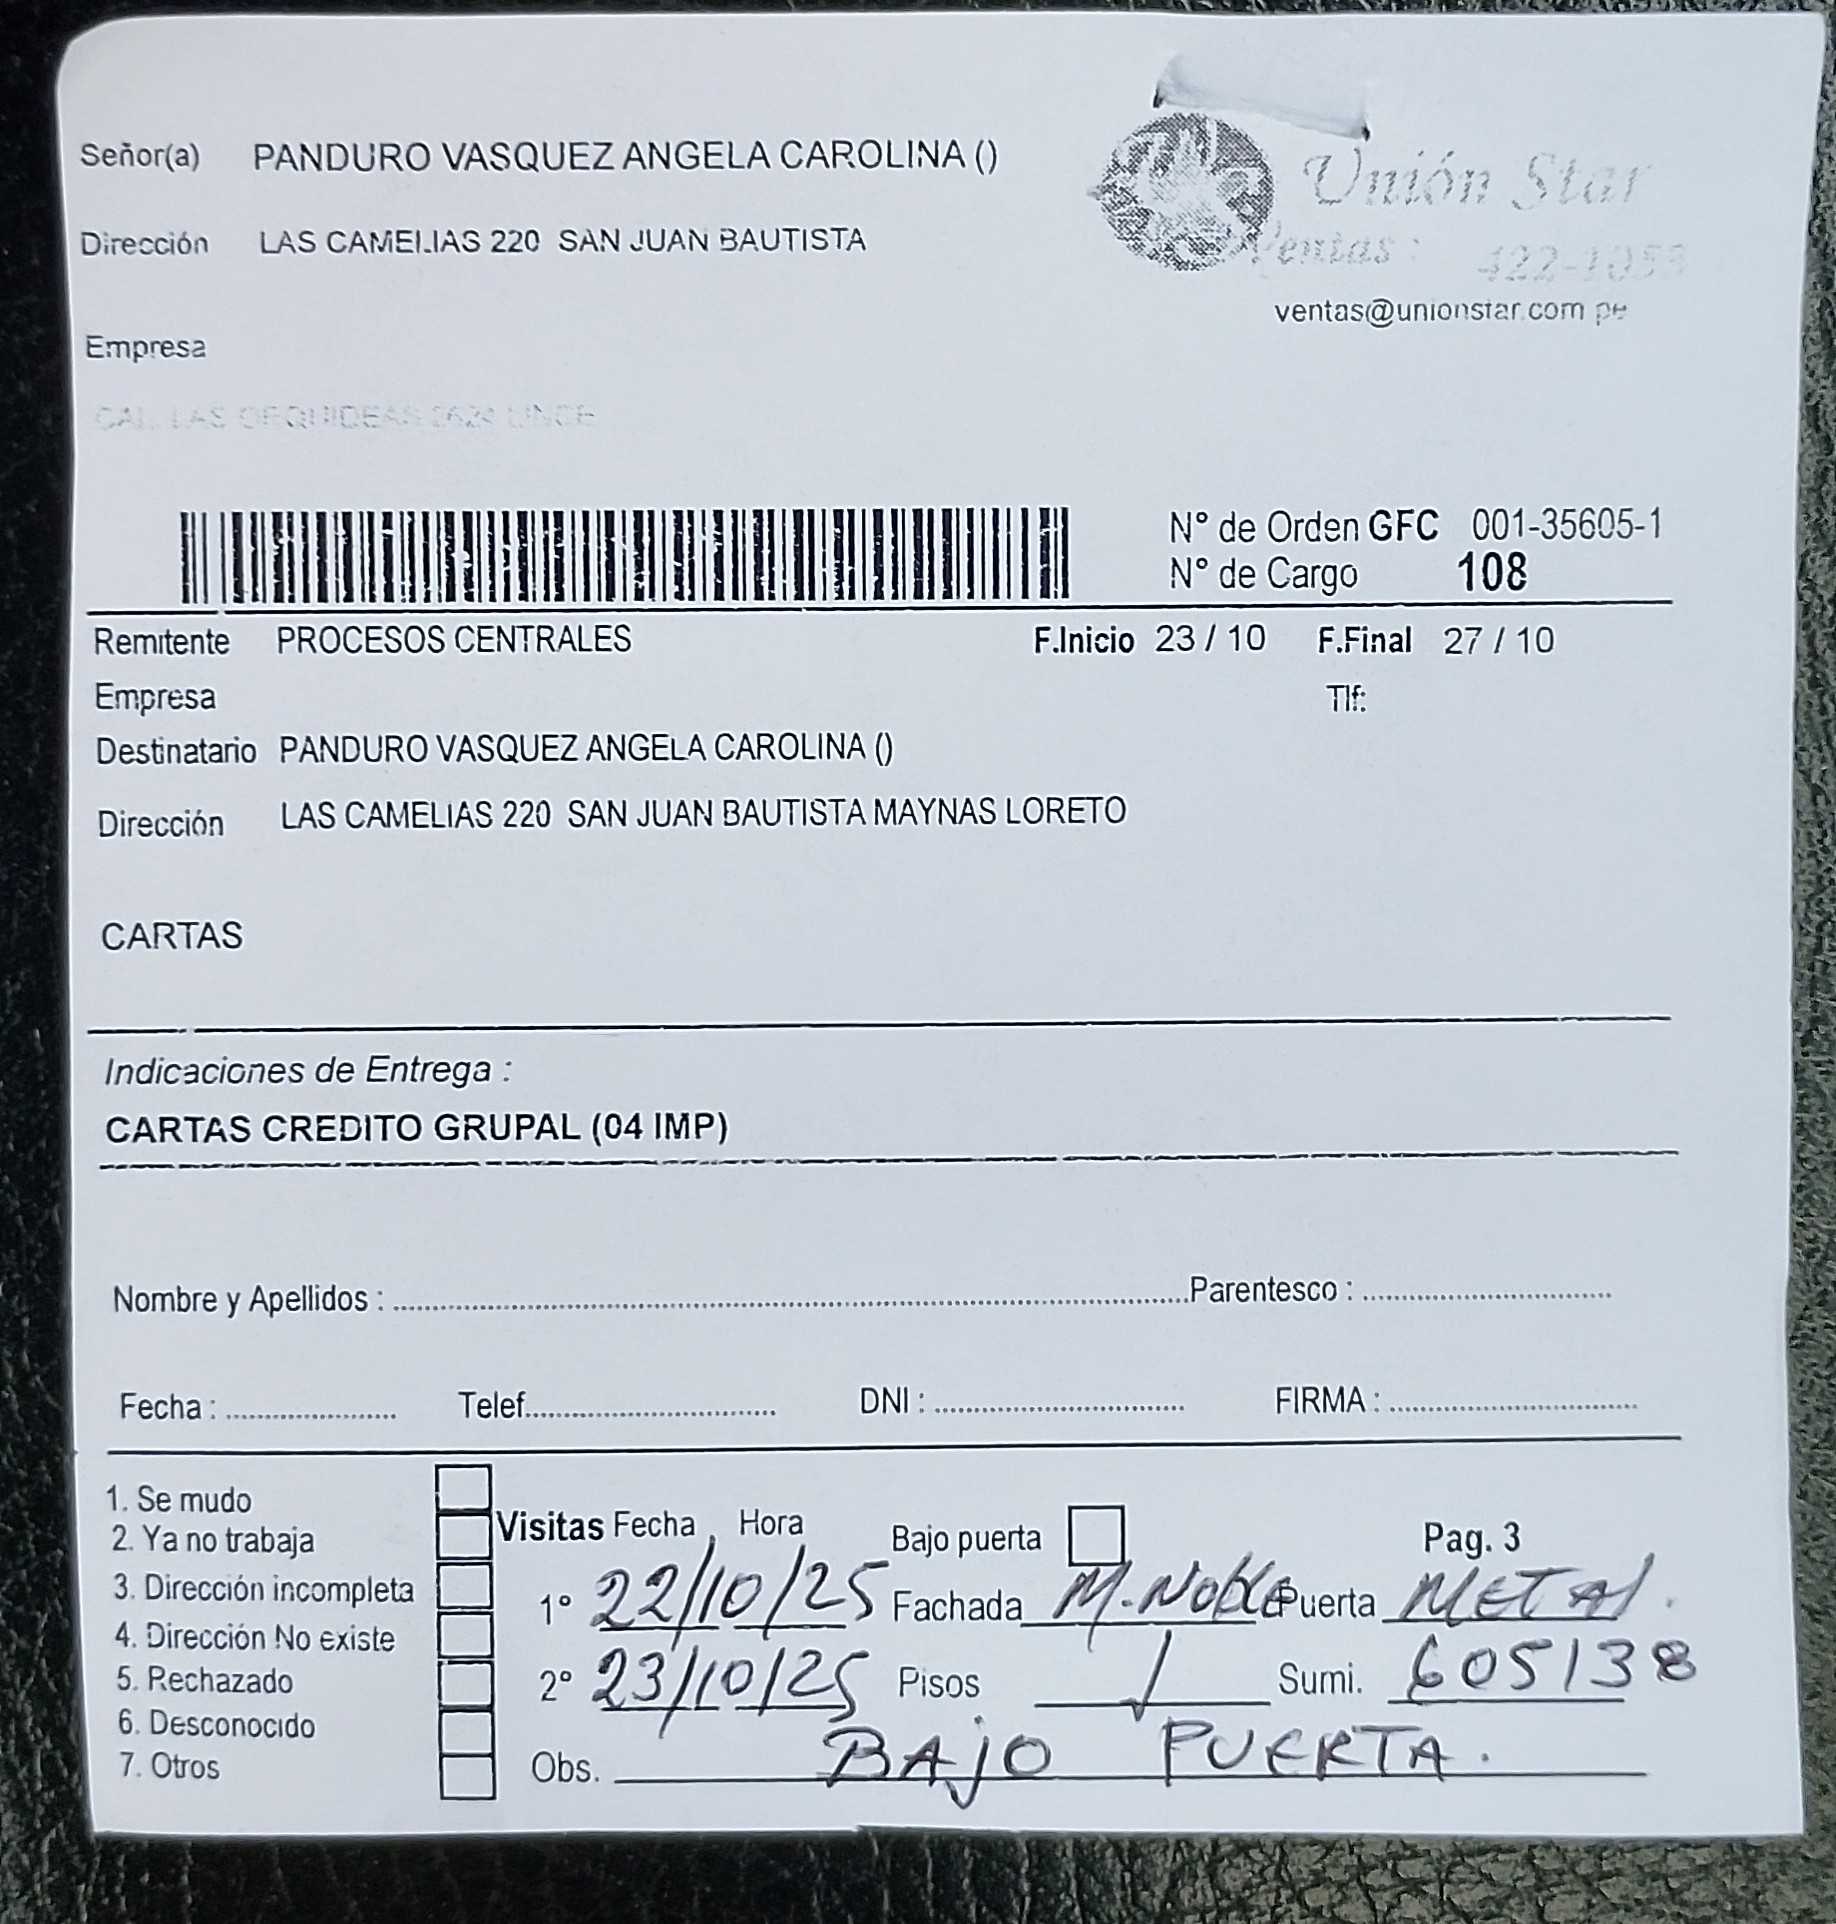 Señor(a) PANDURO VASQUEZ ANGELA CAROLINA ()
Unión Star
Ventas :
Dirección LAS CAMELIAS 220 SAN JUAN BAUTISTA
ventas@unionstar.com pe
Empresa
CAL. LAS ORQUIDEAS LINCE
N° de Orden GFC 001-35605-1
N° de Cargo 108
Remitente PROCESOS CENTRALES F.Inicio 23 / 10 F.Final 27 / 10
Empresa Tlf:
Destinatario PANDURO VASQUEZ ANGELA CAROLINA ()
Dirección LAS CAMELIAS 220 SAN JUAN BAUTISTA MAYNAS LORETO
CARTAS
Indicaciones de Entrega :
CARTAS CREDITO GRUPAL (04 IMP)
Nombre y Apellidos : Parentesco :
Fecha : Telef. DNI : FIRMA :
1. Se mudo
2. Ya no trabaja
3. Dirección incompleta
4. Dirección No existe
5. Rechazado
6. Desconocido
7. Otros
Visitas Fecha Hora Bajo puerta Pag. 3
1° 22/10/25 Fachada M. Noble Puerta METAL.
2° 23/10/25 Pisos 1 Sumi. 605138
Obs. BAJO PUERTA.